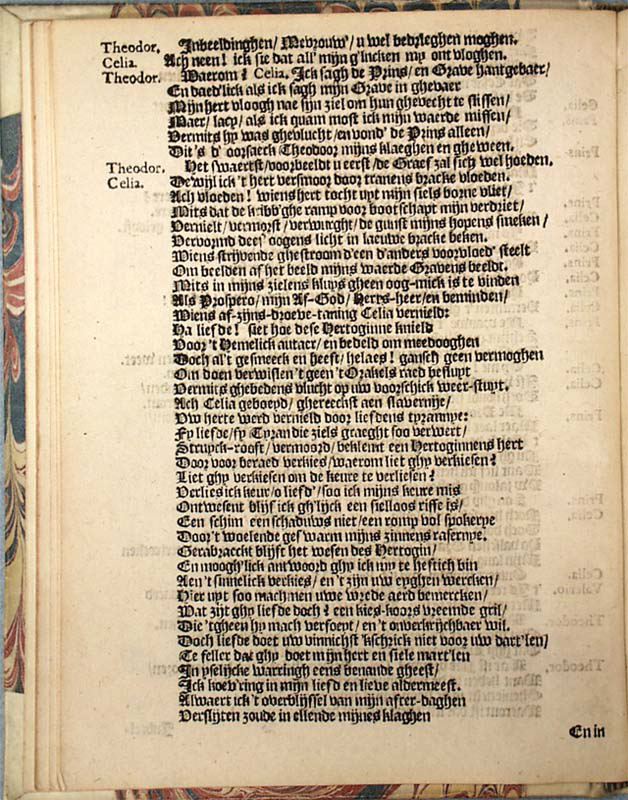 Theodor. Inbeeldinghen/ Mevrouw/ u wel bedrieghen moghen.
Celia. Ach neen! ick sie dat all' mijn g'lucken my ont vloghen.
Theodor. Waerom? Celia. Ick sagh de Prins/ en Grave hantgebaer/
En daed'lick als ick sagh mijn Grave in ghevaer
Mijn hert vloogh nae sijn ziel om hun ghevecht te slissen/
Maer/ lacy/ als ick quam most ick mijn waerde missen/
Vermits hy was ghevlucht/ en vond' de Prins alleen/
Dit's d' oorsaeck Theodoor mijns klaeghen en gheween.
Theodor. Het swaertst/ voorbeeldt u eerst/ de Graef zal sich wel hoeden.
Celia. Dewijl ick 't hert versmoor door tranens bracke vloeden.
Ach vloeden! wiens hert tocht uyt mijn siels borne vliet/
Mits dat de kribb'ghe ramp voor bootschapt mijn verdriet/
Vernielt/ vermorst/ verwurght/ de gunst mijns hopens smeken/
Vervormd dees' oogens licht in laeuwe bracke beken.
Wiens strijvende ghestroom d'een d'anders voorvloed' steelt
Om beelden af het beeld mijns waerde Gravens beeldt.
Mits in mijns zielens kluys gheen oog-mick is te vinden
Als Prospero/ mijn Af-God/ Hertys-heer/ en beminden/
Wiens af-zijns-droeve-taning Celia vernield:
Ha liefde! siet hoe dese Hertoginne knield
Voor 't Hemelick autaer/ en bedeld om meedooghen
Doch al't gesmeeck en heeft/ helaes! gansch geen vermoghen
Om doen verwislen 't geen 't Orakels raed besluyt
Vermits ghebedens vlucht op uw voorschick weer-stuyt.
Ach Celia geboeyd/ ghereeckst aen slavernije/
Uw herte werd vernield door liefdens tyrannye:
Fy liefde/ fy Tyran die ziels graeght soo verwert/
Struyck-rooft/ vermoord/ beklemt een Hertoginnens hert
Door voor beraed verkies/ waerom liet ghy verkiesen?
Liet ghy verkiesen om de keure te verliesen?
Verlies ick keur/ o liefd'/ soo ick mijns keure mis
Ontwesent blijf ick gh'lijck een sielloos risse is/
Een schim een schaduws niet/ een romp vol spokerye
Door't woelende ges'warm mijns zinnens rasernye.
Gerabraeckt blijft het wesen des Hertogin/
En moogh'lick antwoord ghy ick my te hestich bin
Aen't sinnelick verkies/ en 't zijn uw eyghen wercken/
Hier uyt soo mach men uwe wrede aerd bemercken/
Wat zijt ghy liefde doch? een kies-koors vreemde gril/
Die 'tgheen hy mach verfoeyt/ en 't onverkrijchbaer wil.
Doch liefde doet uw vinnichst 'kschrick niet voor uw dart'len/
Te feller dat ghy doet mijn hert en siele mart'len
In yselijcke warringh eens benaude gheest/
Ick koev'ring in mijn liefd en lieve aldermeest.
Alwaert ick 't overblijfsel van mijn after-daghen
Verslijten zoude in ellende mijnes klaghen
En in